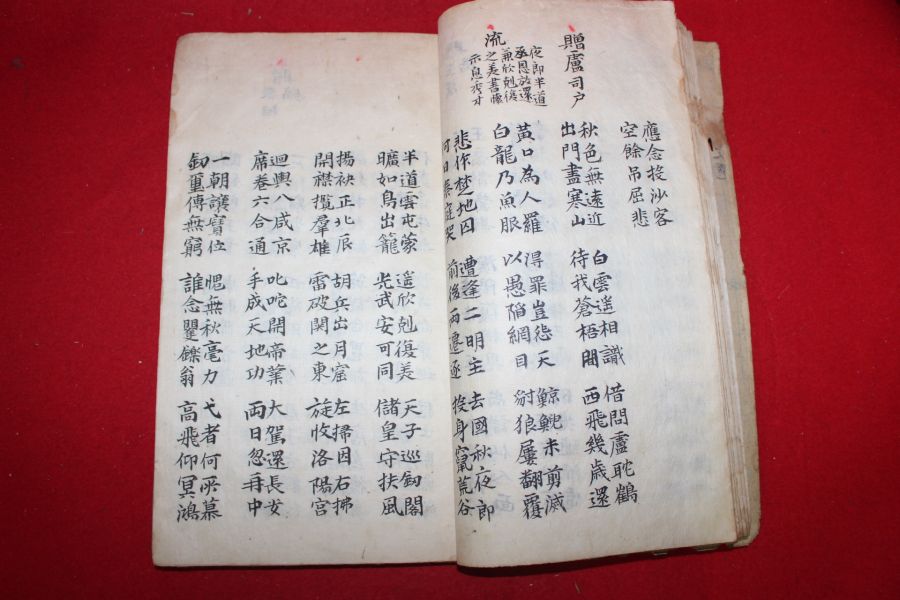 應念投沙客
空餘吊屈悲
贈盧司户
秋色無遠近
出門盡寒山
白雲遙相識
待我蒼梧間
借問盧耽鶴
西飛幾歲還
流
夜郎半道
丞恩放還
兼欣剋復
之美書懷
示息秀才
黃口為人羅
白龍乃魚服
得罪豈怨天
以愚陷網目
鯨鯢未剪滅
豺狼屢翻覆
悲作楚地囚
何日秦庭哭
遭逢二明主
前後兩遷逐
去國秋夜郎
投身竄荒谷
半道雲屯蒙
曠如鳥出籠
遙欣剋復美
光武安可同
天子巡釰閣
儲皇守扶風
揚袂正北辰
開襟攬羣雄
胡兵出月窟
雷破關之東
左掃因右拂
旋收洛陽宮
迴輿八咸京
席卷六合通
叱咤開帝業
手成天地功
大駕還長安
兩日忽再中
一朝讓寶位
釰重傳無窮
愧無秋毫力
誰念矍鑠翁
弋者何所慕
高飛仰冥鴻